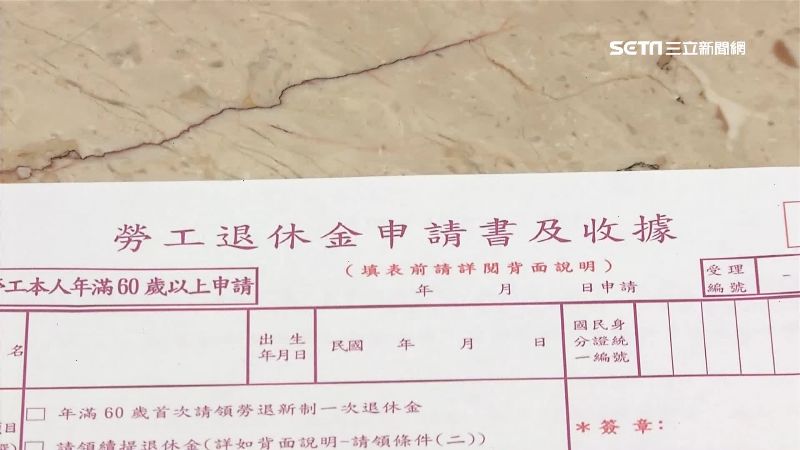 SETN三立新聞網
勞工退休金申請書及收據
(填表前請詳閱背面說明)
年 月 日申請
受理編號
勞工本人年滿60歲以上申請
名
出生年月日
民國 年 月 日
國民身分證統一編號
□ 年滿60歲首次請領勞退新制一次退休金
□ 請領續提退休金(詳如背面說明-請領條件(二))
＊簽章: